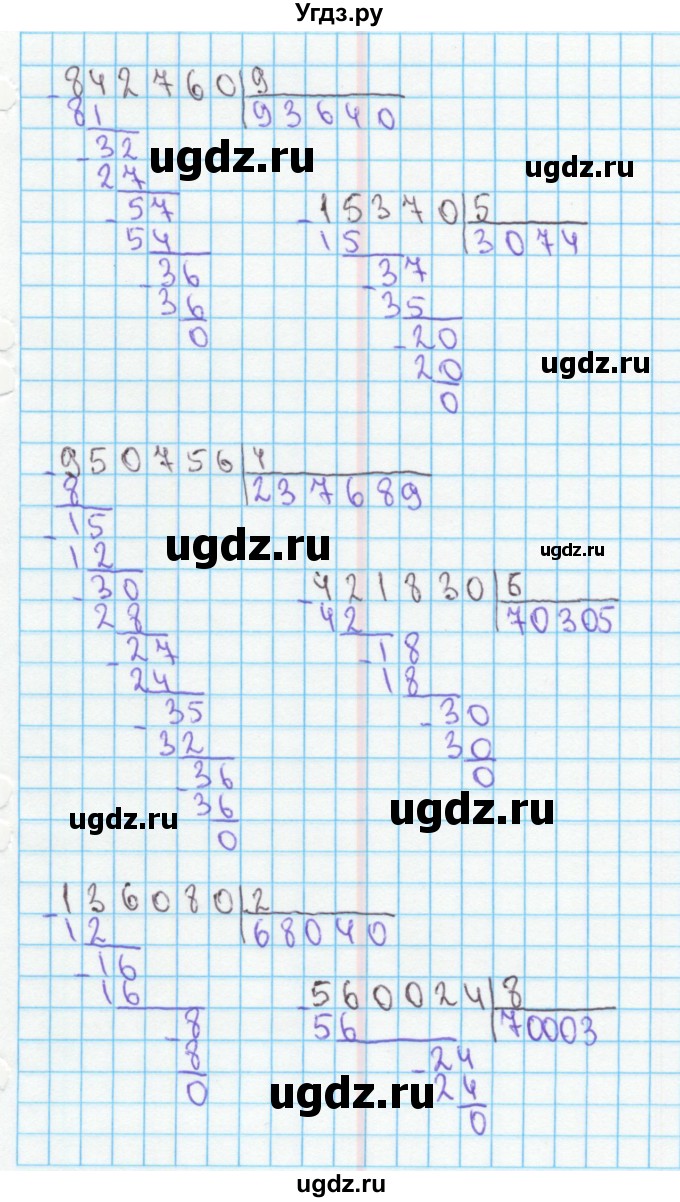 Угдз.ру
842760 9
81 93640
32
27
57
54
36
36
0
15370 5
15 3074
37
35
20
20
0
950756 4
8 237689
15
12
30
28
27
24
35
32
36
36
0
421830 6
42 70305
18
18
30
30
0
136080 2
12 68040
16
16
8
8
0
560024 8
56 70003
24
24
0
ugdz.ru
ugdz.ru
ugdz.ru
ugdz.ru
ugdz.ru
ugdz.ru
ugdz.ru
ugdz.ru
ugdz.ru